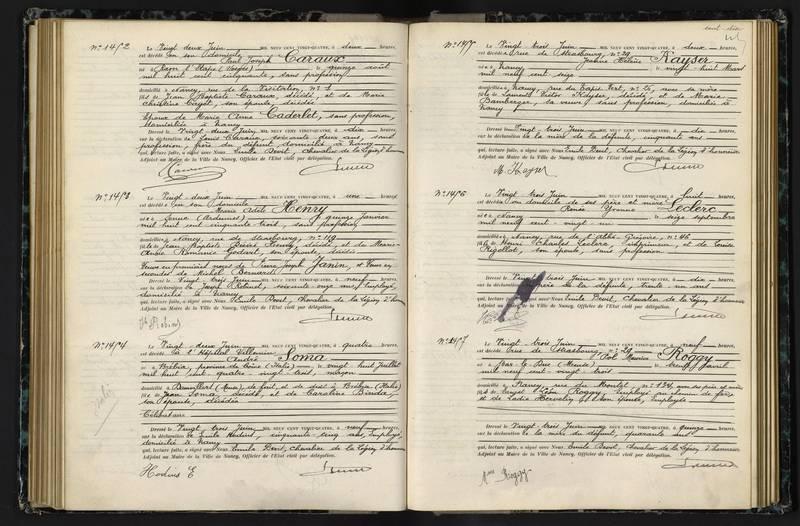 N° 1452
Le Vingt deux Juin MIL NEUF CENT VINGT-QUATRE, à deux heures,
est décédé en son domicile
Paul Joseph Caraux
né à Raon l'Etape (Vosges) le quinze août
mil huit cent cinquante, sans profession
domicilié à Nancy, rue de la Visitation, n° 1
fils de Jean Baptiste Caraux, décédé, et de Marie
Christine son épouse, décédée
Epoux de Marie Anna Caderlet, sans profession,
domiciliée à Nancy
Dressé le Vingt-deux Juin MIL NEUF CENT VINGT-QUATRE, à dix heures,
sur la déclaration de Louis soixante deux ans, sans
profession, frère du défunt domicilié à Nancy
qui, lecture faite, a signé avec Nous Emile Devit, Chevalier de la Légion d'honneur
Adjoint au Maire de la Ville de Nancy, Officier de l'Etat civil par délégation.
N° 1453
Le Vingt-deux Juin MIL NEUF CENT VINGT-QUATRE, à onze heures,
est décédée en son domicile
Marie Adèle Henry
née à Senuc (Ardennes) le quinze Janvier
mil huit cent cinquante trois, sans profession
domiciliée à Nancy, rue de Strasbourg, n° 119
fille de Jean Baptiste Henry, décédé, et de Marie-
Godart, son épouse, décédée
Veuve en premières noces de Pierre Joseph Janin, et Veuve en
secondes de Michel Bernard
Dressé le Vingt trois Juin MIL NEUF CENT VINGT-QUATRE, à neuf heures,
sur la déclaration de Joseph Robinet, soixante onze ans, employé,
domicilié à Nancy
qui, lecture faite, a signé avec Nous Emile Devit, Chevalier de la Légion d'honneur
Adjoint au Maire de la Ville de Nancy, Officier de l'Etat civil par délégation.
N° 1454
Le Vingt-deux Juin MIL NEUF CENT VINGT-QUATRE, à quatre heures,
est décédé à l'Hôpital Villemin
André Soma
né à Brélia, province de Côme (Italie) le vingt huit Juillet
mil huit cent quatre vingt trois, maçon
domicilié à de fait, et de droit à Brélia (Italie)
fils de Jean Soma, décédé, et de Caroline Binda,
son épouse, décédée
Célibataire
Dressé le Vingt trois Juin MIL NEUF CENT VINGT-QUATRE, à neuf heures,
sur la déclaration de Emile Hodins, cinquante cinq ans, employé,
domicilié à Nancy
qui, lecture faite, a signé avec Nous Emile Devit, Chevalier de la Légion d'honneur
Adjoint au Maire de la Ville de Nancy, Officier de l'Etat civil par délégation.
Hodins E
N° 1455
Le Vingt-trois Juin MIL NEUF CENT VINGT-QUATRE, à deux heures,
est décédée rue de Strasbourg, n° 29
Jeanne Hélène Kayser
née à Nancy le vingt huit Mars
mil neuf cent seize
domiciliée à Nancy, rue du Tapis Vert, n° chez sa mère
fille de Laurent Victor Kayser, décédé, et de Marie
Bamberger, sa veuve sans profession, domiciliée à
Nancy
Dressé le Vingt-trois Juin MIL NEUF CENT VINGT-QUATRE, à dix heures,
sur la déclaration de la mère de la défunte, cinquante ans
qui, lecture faite, a signé avec Nous Emile Devit, Chevalier de la Légion d'honneur
Adjoint au Maire de la Ville de Nancy, Officier de l'Etat civil par délégation.
N° 1456
Le Vingt-trois Juin MIL NEUF CENT VINGT-QUATRE, à huit heures,
est décédée au domicile de ses père et mère
Renée Yvonne Leclerc
née à Nancy le seize septembre
mil neuf cent vingt un
domiciliée à Nancy, rue de l'abbé Grégoire, n° 46
fille de Henri Charles Leclerc, imprimeur, et de Louise
Rigollot, son épouse, sans profession
Dressé le Vingt trois Juin MIL NEUF CENT VINGT-QUATRE, à dix heures,
sur la déclaration du père de la défunte, trente un ans
qui, lecture faite, a signé avec Nous Emile Devit, Chevalier de la Légion d'honneur
Adjoint au Maire de la Ville de Nancy, Officier de l'Etat civil par délégation.
N° 1457
Le Vingt-trois Juin MIL NEUF CENT VINGT-QUATRE, à neuf heures,
est décédé rue de Strasbourg, n° 29
Maurice Roggy
né à Bar le Duc (Meuse) le Avril
mil neuf cent vingt trois
domicilié à Nancy, rue du Montet, n° 134, avec ses père et mère
fils de Léon Roggy, employé au chemin de fer
et de son épouse, employée
Dressé le Vingt-trois Juin MIL NEUF CENT VINGT-QUATRE, à quinze heures,
sur la déclaration de la mère du défunt, quarante ans
qui, lecture faite, a signé avec Nous Emile Devit, Chevalier de la Légion d'honneur
Adjoint au Maire de la Ville de Nancy, Officier de l'Etat civil par délégation.
Roggy